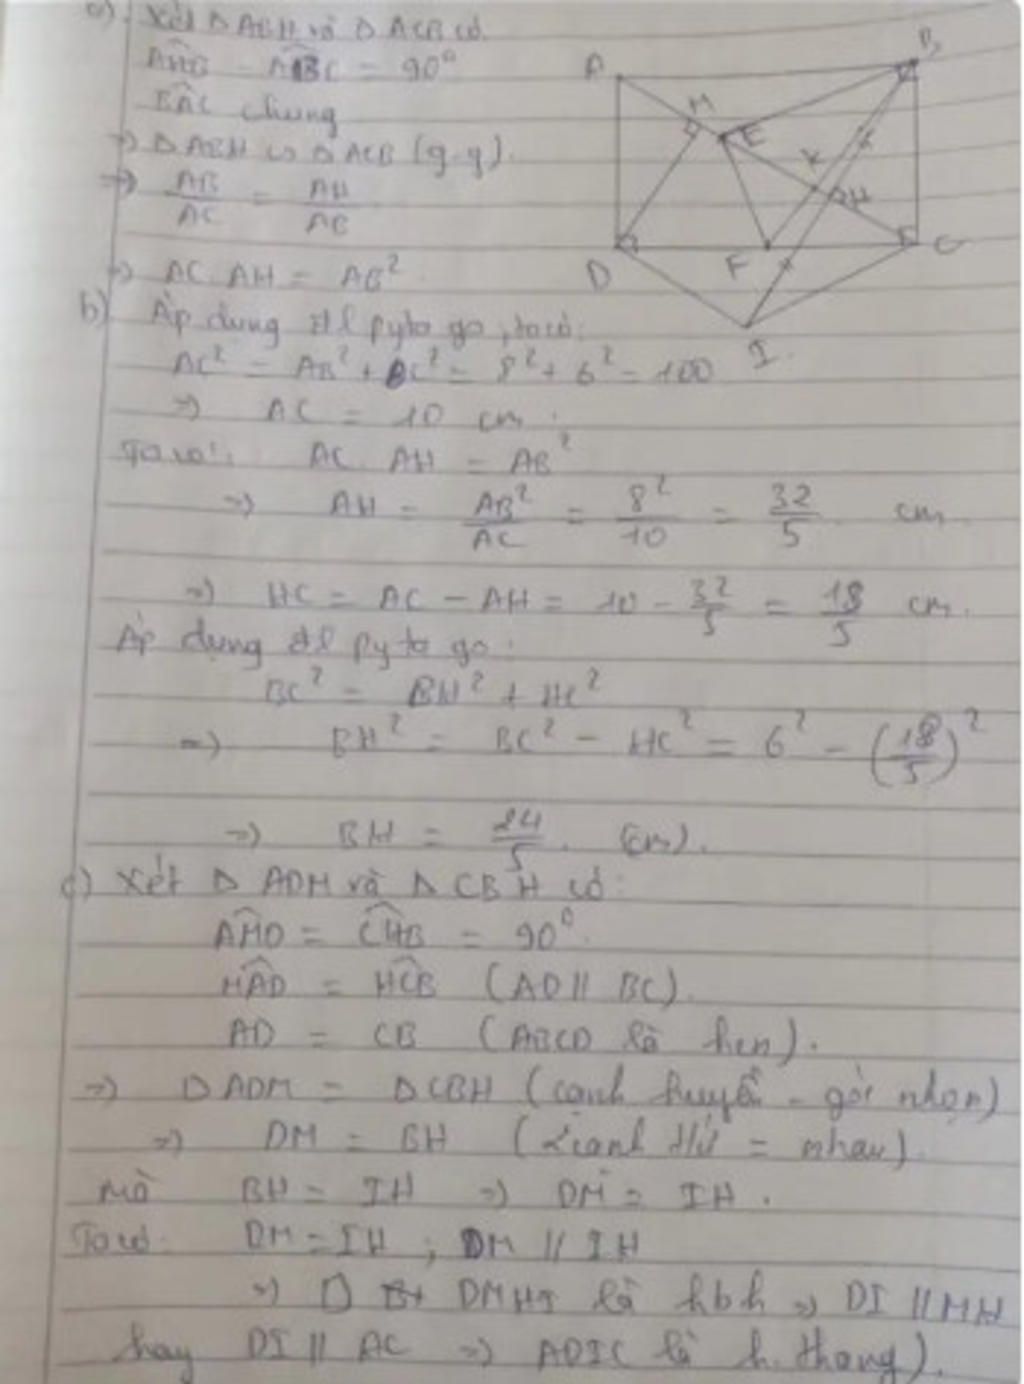 a) Xét Δ ABH và Δ ACB có
AHB = ABC = 90°
BAC chung
=> Δ ABH ∽ Δ ACB (g.g).
=> AB/AC = AH/AB
=> AC. AH = AB²
b) Áp dụng đl pyta go, ta có:
AC² = AB² + BC² = 8² + 6² = 100
=> AC = 10 cm.
Ta có: AC. AH = AB²
=> AH = AB²/AC = 8²/10 = 32/5 cm
=> HC = AC - AH = 10 - 32/5 = 18/5 cm.
Áp dụng đl pyta go:
BC² = BH² + HC²
=> BH² = BC² - HC² = 6² - (18/5)²
=> BH = 24/5. (cm).
c) Xét Δ ADM và Δ CBH có:
AMD = CHB = 90°.
MAD = HCB (AD // BC).
AD = CB (ABCD là hcn).
=> Δ ADM = Δ CBH (cạnh huyền - góc nhọn)
=> DM = BH (2 cạnh t/ứ = nhau)
Mà BH = IH => DM = IH.
Ta có: DM = IH ; DM // IH
=> DMHI là hbh => DI // MH
hay DI // AC => ADIC là h. thang).
A
B
M
E
K
H
D
F
C
I